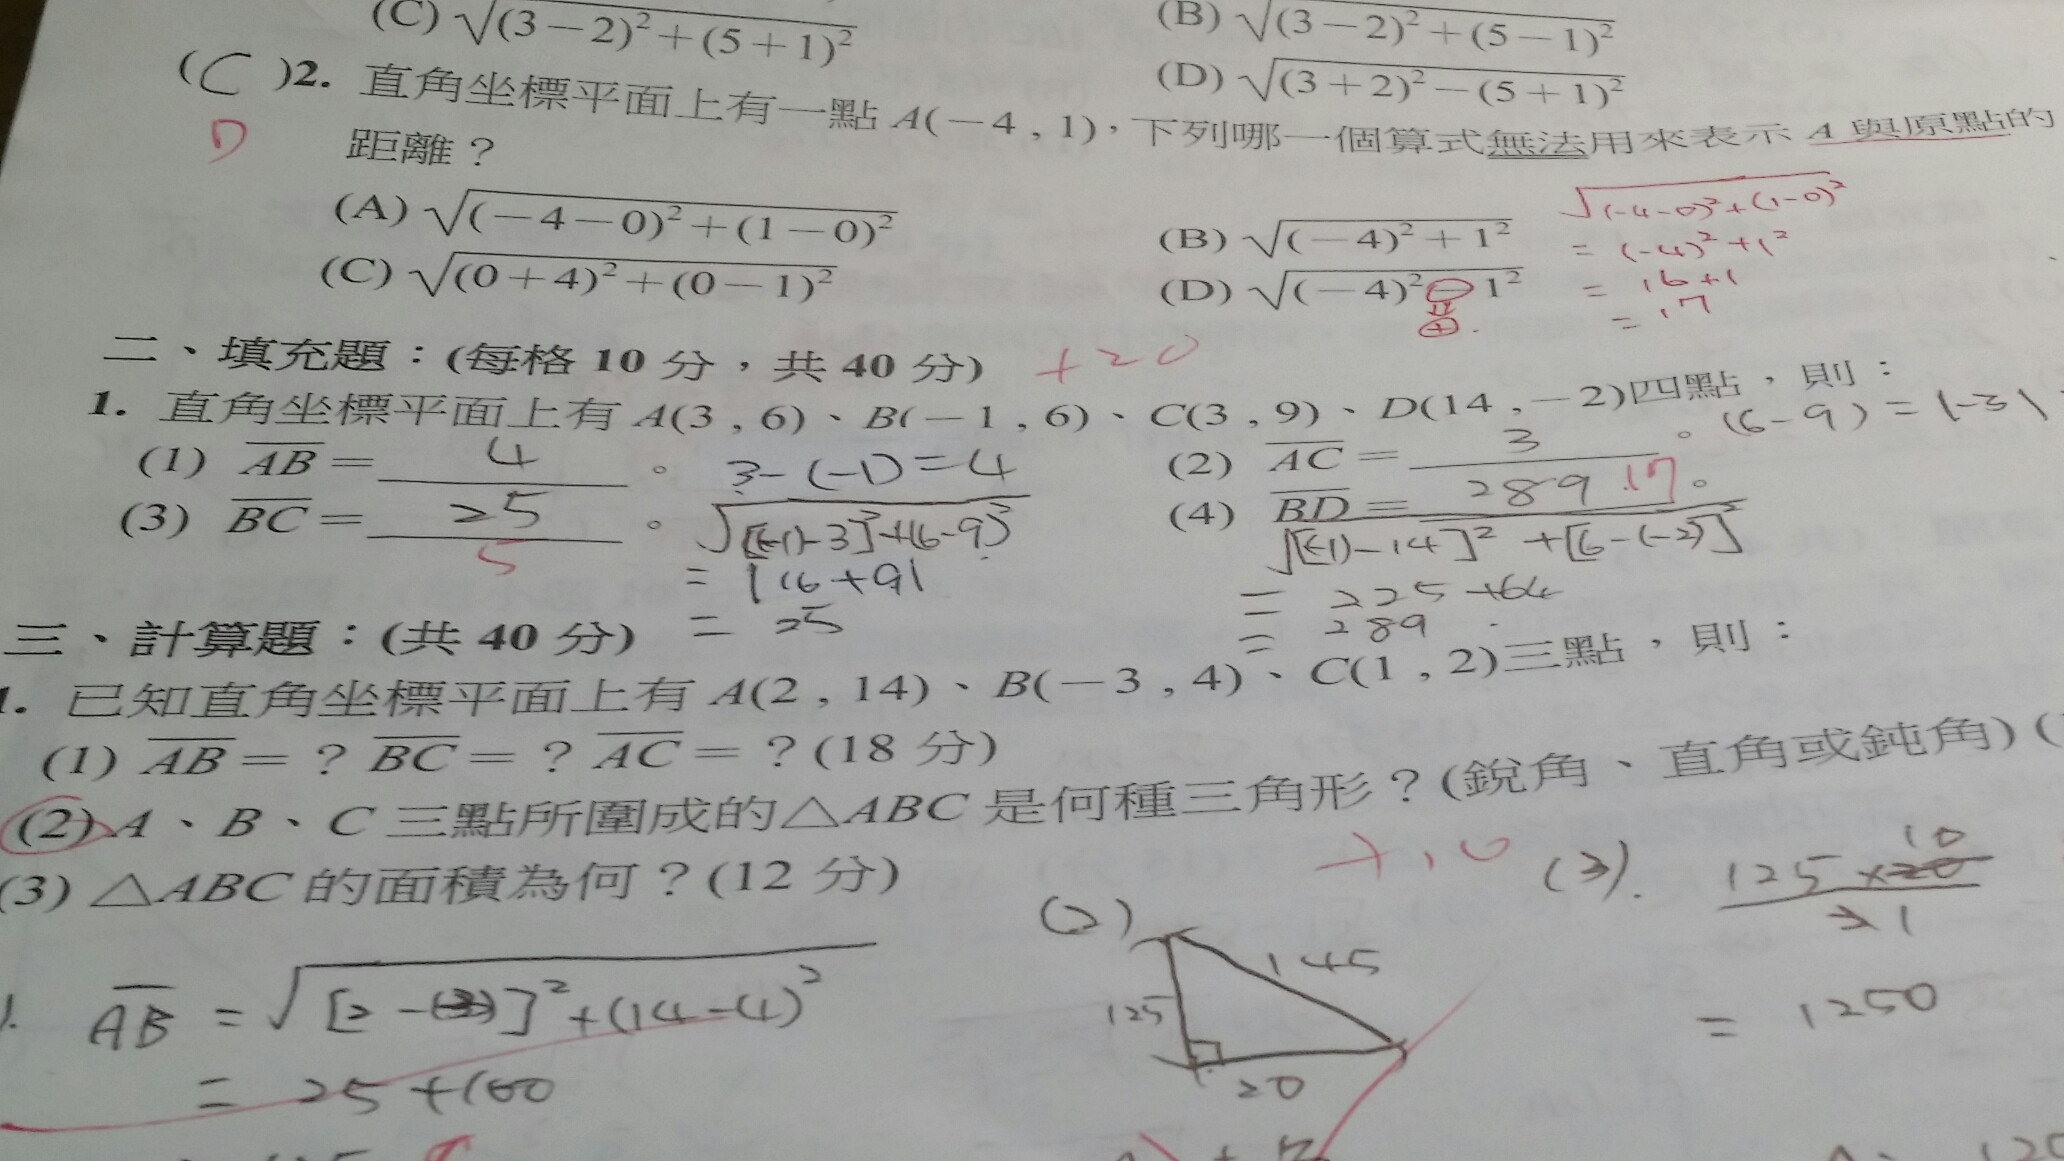 (C) √(3－2)²＋(5＋1)²
(B) √(3－2)²＋(5－1)²
(D) √(3＋2)²－(5＋1)²
(C)2. 直角坐標平面上有一點 A(－4 , 1)，下列哪一個算式無法用來表示 A 與原點的
D
距離？
(A) √(－4－0)²＋(1－0)²
(B) √(－4)²＋1²
(C) √(0＋4)²＋(0－1)²
(D) √(－4)²－1²
⊕
√(-4-0)²+(1-0)²
= (-4)²+1²
= 16+1
= 17
二、填充題：(每格 10 分，共 40 分) +20
1. 直角坐標平面上有 A(3 , 6)、B(－1 , 6)、C(3 , 9)、D(14 , －2)四點，則：
(1) AB＝ 4 。 3-(-1)=4
(2) AC＝ 3 。 (6-9)=|-3|
(3) BC＝ 25 。
5
√[(-1)-3]²+(6-9)²
= |16+9|
= 25
(4) BD＝ 289 17 。
√[(-1)-14]²+[6-(-2)]²
= 225+64
= 289
三、計算題：(共 40 分)
1. 已知直角坐標平面上有 A(2 , 14)、B(－3 , 4)、C(1 , 2)三點，則：
(1) AB＝？BC＝？AC＝？(18 分)
(2) A、B、C 三點所圍成的△ABC 是何種三角形？(銳角、直角或鈍角)(
(3) △ABC 的面積為何？(12 分)
+10
1. AB = √[2-(-3)]²+(14-4)²
= 25+100
(2)
145
125
20
(3). 125×20 10
21
= 1250